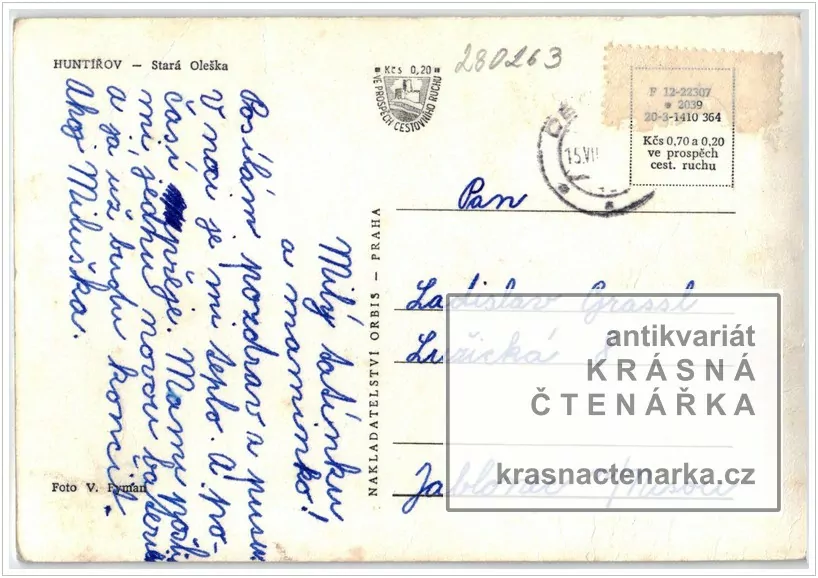 HUNTÍŘOV — Stará Oleška
Kčs 0,20
VE PROSPĚCH CESTOVNÍHO RUCHU
280263
F 12-22307
* 2039
20-3-1410 364
Kčs 0,70 a 0,20
ve prospěch
cest. ruchu
15.VII
Milý tatínku
a maminko!
Posílám pozdrav a pusu
V noci je mi teplo. A po-
časí přeje. Mami pošli
mi jednu novou baterii
a já už budu končit.
Ahoj Miluška.
Foto V. Pyman
NAKLADATELSTVÍ ORBIS — PRAHA
Pan
Ladislav Grassl
Lužická 8
Jablonec n/Nisou
antikvariát
KRÁSNÁ
ČTENÁŘKA
krasnactenarka.cz